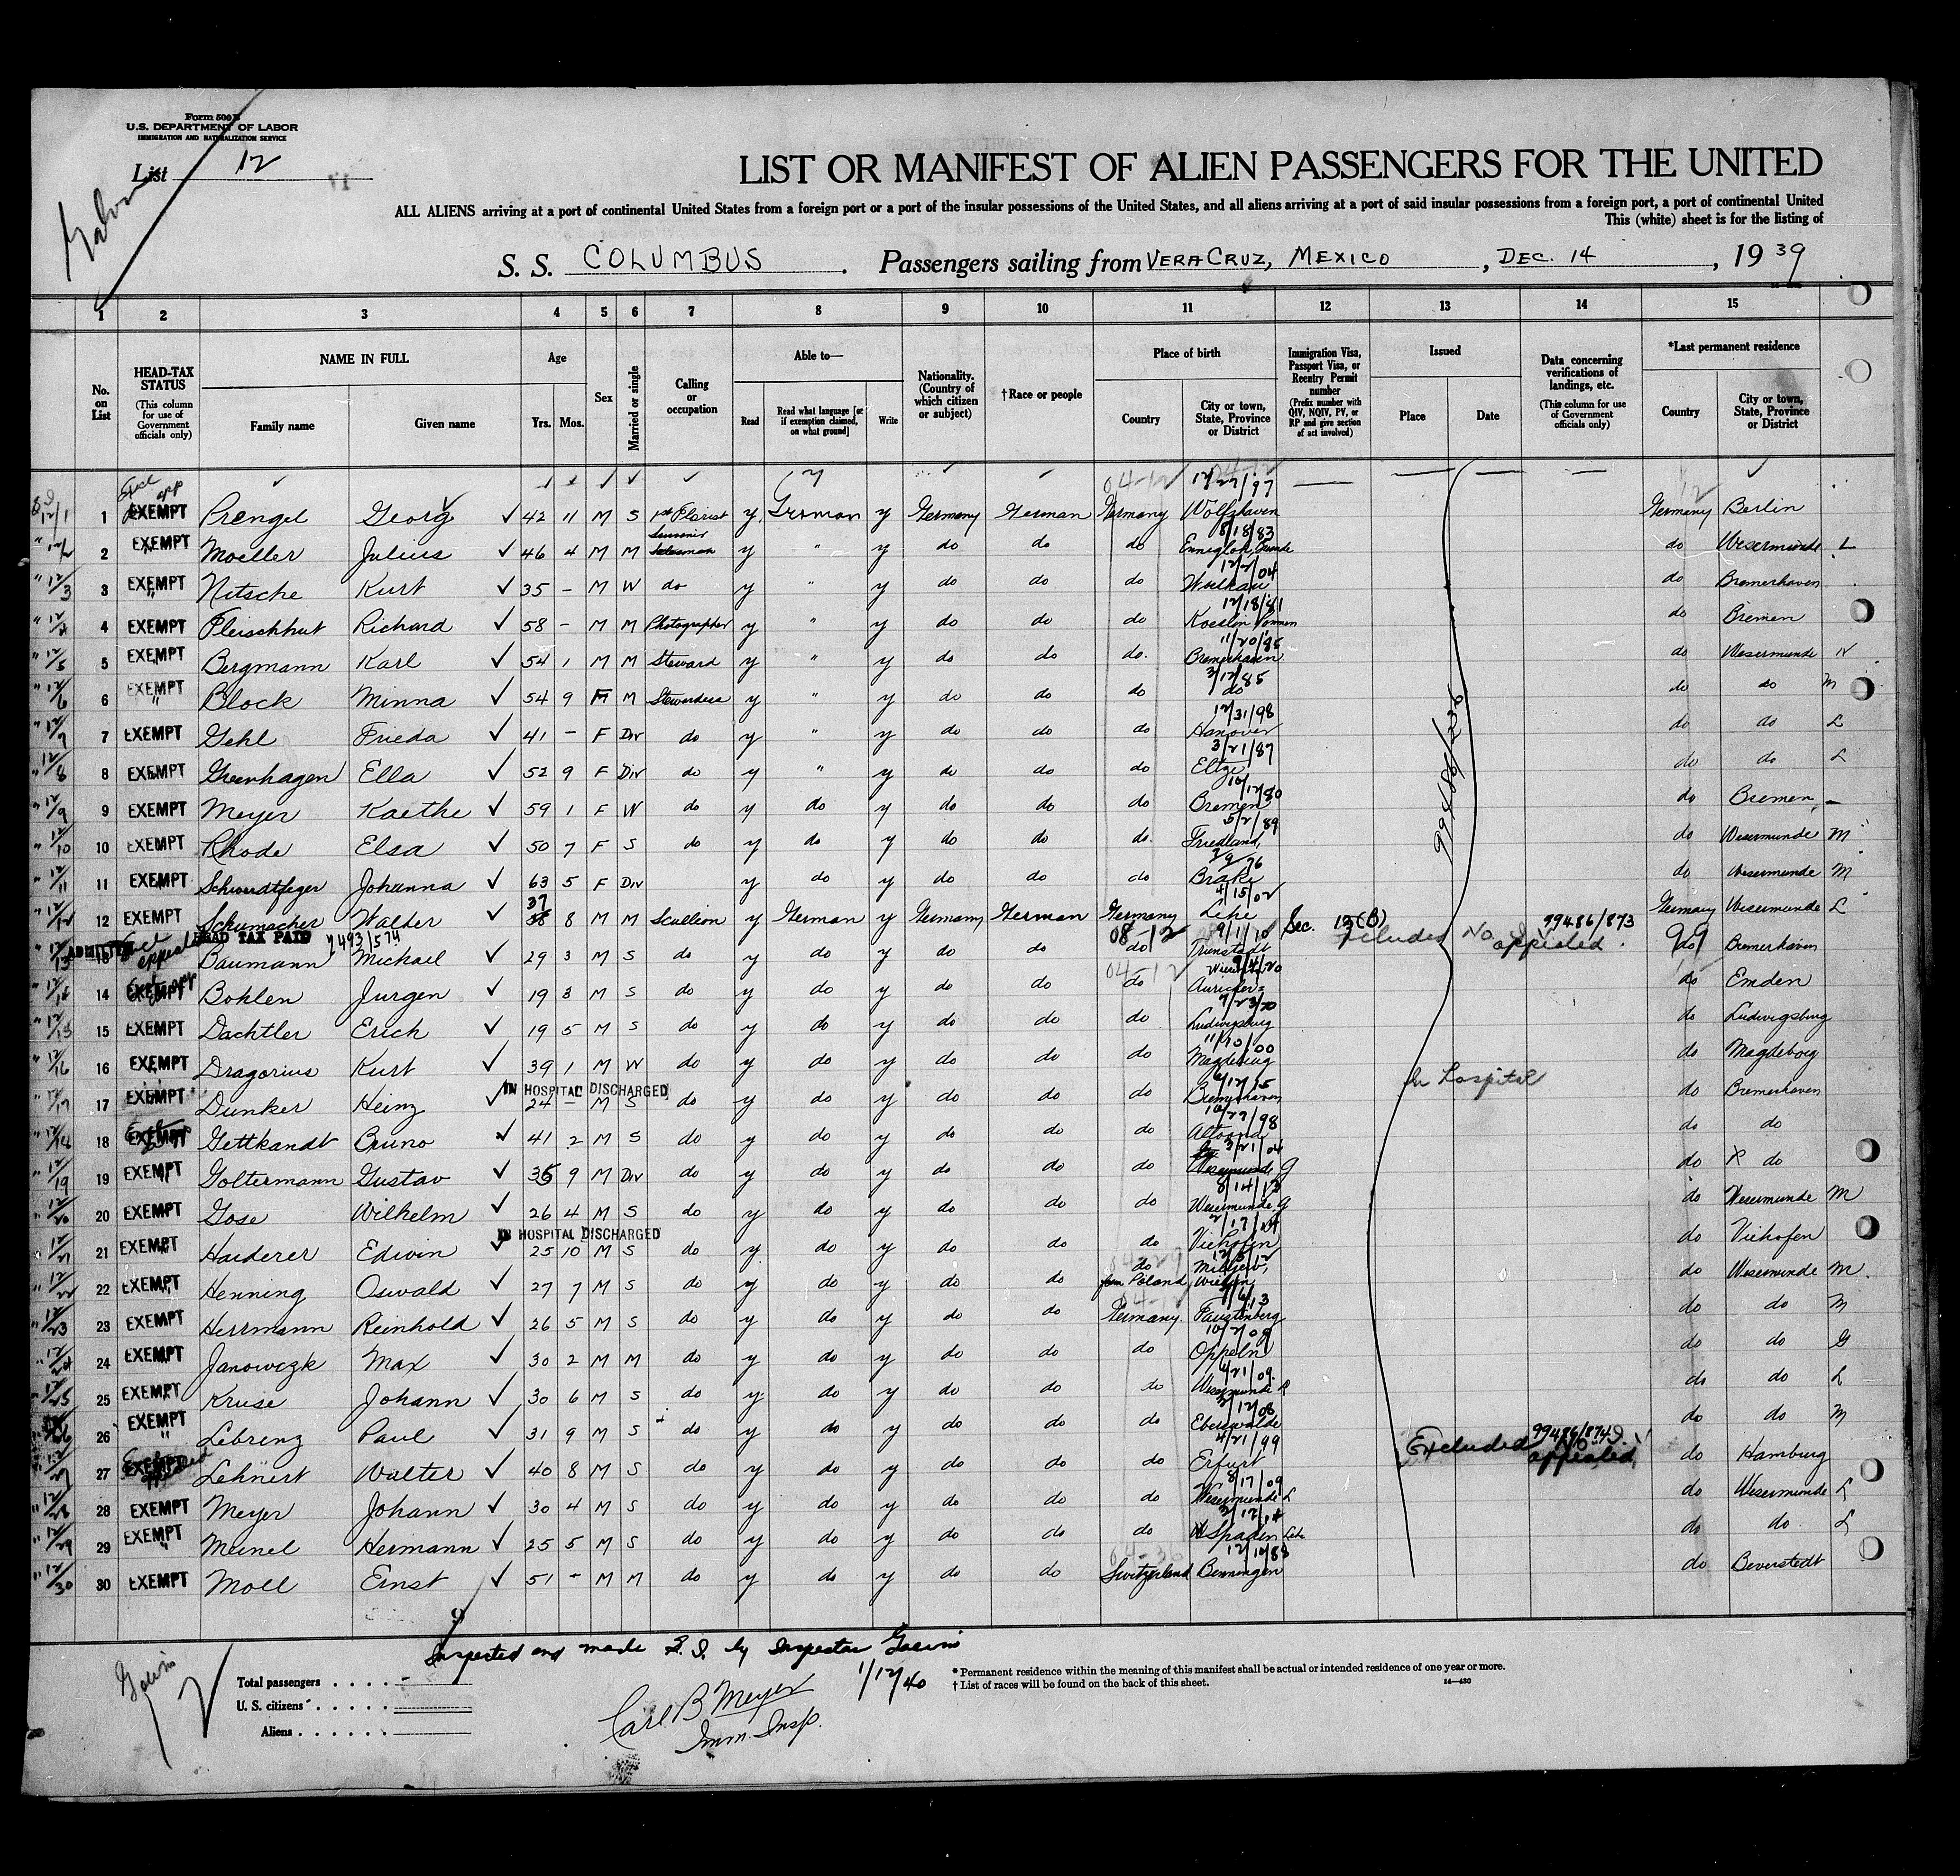 Form 500 B
U.S. DEPARTMENT OF LABOR
IMMIGRATION AND NATURALIZATION SERVICE
List 12
LIST OR MANIFEST OF ALIEN PASSENGERS FOR THE UNITED
ALL ALIENS arriving at a port of continental United States from a foreign port or a port of the insular possessions of the United States, and all aliens arriving at a port of said insular possessions from a foreign port, a port of continental United
This (white) sheet is for the listing of
S. S. COLUMBUS. Passengers sailing from VERA CRUZ, MEXICO, DEC. 14, 1939
1 2 3 4 5 6 7 8 9 10 11 12 13 14 15
No. on List
HEAD-TAX STATUS (This column for use of Government officials only)
NAME IN FULL
Family name Given name
Age
Yrs. Mos.
Sex
Married or single
Calling or occupation
Able to—
Read Read what language [or if exemption claimed, on what ground] Write
Nationality. (Country of which citizen or subject)
† Race or people
Place of birth
Country City or town, State, Province or District
Immigration Visa, Passport Visa, or Reentry Permit number (Prefix number with QIV, NQIV, PV, or RP and give section of act involved)
Issued
Place Date
Data concerning verifications of landings, etc. (This column for use of Government officials only)
*Last permanent residence
Country City or town, State, Province or District
12/27/97
1 EXEMPT Prengel Georg 42 11 M S 1st Florist y German y Germany German Germany Wolfshaven Germany Berlin
8/18/83
2 EXEMPT Moeller Julius 46 4 M M Souvenir Salesman y " y do do do do Wesermunde L
12/2/04
3 EXEMPT Nitsche Kurt 35 - M W do y " y do do do do Bremerhaven
12/18/81
4 EXEMPT Fleischhut Richard 58 - M M Photographer y " y do do do Koeslin do Bremen
11/20/85
5 EXEMPT Bergmann Karl 54 1 M M Steward y " y do do do. Bremerhaven do Wesermunde
3/12/85
6 EXEMPT Block Minna 54 9 F M Stewardess y " y do do do do do do M
12/31/98
7 EXEMPT Gehl Frieda 41 - F Div do y " y do do do Hanover do do L
3/21/87
8 EXEMPT Greenhagen Ella 52 9 F Div do y " y do do do Eltze do do L
10/12/80
9 EXEMPT Meyer Kaethe 59 1 F W do y do y do do do Bremen do Bremen
5/2/89
10 EXEMPT Rhode Elsa 50 7 F S do y do y do do do. Friedland, do Wesermunde M
7/9/76
11 EXEMPT Schwerdtfeger Johanna 63 5 F Div y do y do do do Brake do Wesermunde M
4/15/02
12 EXEMPT Schumacher Walder 37 8 M M Scullion y German y Germany German Germany Lehe Germany Wesermunde L
HEAD TAX PAID 9/1/10 Sec. 13(B) 99486/873
13 ADMITTED Baumann Michael 29 3 M S do y do y do do do Trunstadt Excluded No appealed. do Bremerhaven
14 EXEMPT Bohlen Jurgen 19 3 M S do y do y do do do do Emden
7/23/20
15 EXEMPT Dachtler Erich 19 5 M S do y do y do do do Ludwigsburg do Ludwigsburg
11/10/00
16 EXEMPT Dragorius Kurt 39 1 M W do y do y do do do Magdeburg do Magdeborg
IN HOSPITAL DISCHARGED In hospital
17 EXEMPT Dunker Heinz 24 - M S do y do y do do do Bremerhaven do Bremerhaven
10/29/98
18 EXEMPT Gettkandt Bruno 41 2 M S do y do y do do do Altona do do
3/21/04
19 EXEMPT Goltermann Gustav 35 9 M Div do y do y do do do Wesermunde G do do
8/14/13
20 EXEMPT Gose Wilhelm 26 4 M S do y do y do do do Wesermunde G do Wesermunde M
IN HOSPITAL DISCHARGED 2/17/14
21 EXEMPT Haiderer Edwin 25 10 M S do y do y do do do Viehofen do Viehofen
12/5/12
22 EXEMPT Henning Oswald 27 7 M S do y do y do do do Poland do Wesermunde M.
23 EXEMPT Herrmann Reinhold 26 5 M S do y do y do do Germany Faustenberg do do M
10/2/09
24 EXEMPT Janowczk Max 30 2 M M do y do y do do do Oppeln do do G
6/21/09
25 EXEMPT Kruse Johann 30 6 M S do y do y do do do Wesermunde do do L
3/12/08
26 EXEMPT Lebrenz Paul 31 9 M S do y do y do do do Eberswalde do do M
4/21/99 99486/874
27 EXEMPT Lehnert Walter 40 8 M S do y do y do do do Erfurt Excluded No appealed do Hamburg
8/17/09
28 EXEMPT Meyer Johann 30 4 M S do y do y do do do Wesermunde L do Wesermunde L
29 EXEMPT Meinel Hermann 25 5 M S do y do y do do do Spaden Lehe do do L
12/10/88
30 EXEMPT Moll Ernst 51 - M M do y do y do do Switzerland Benningen do Beverstedt
99486/236
Inspected and made S. I. by Inspector Galvin
1/12/40
Carl B Meyer
Imm. Insp.
Total passengers
U. S. citizens
Aliens
* Permanent residence within the meaning of this manifest shall be actual or intended residence of one year or more.
† List of races will be found on the back of this sheet.
14—430